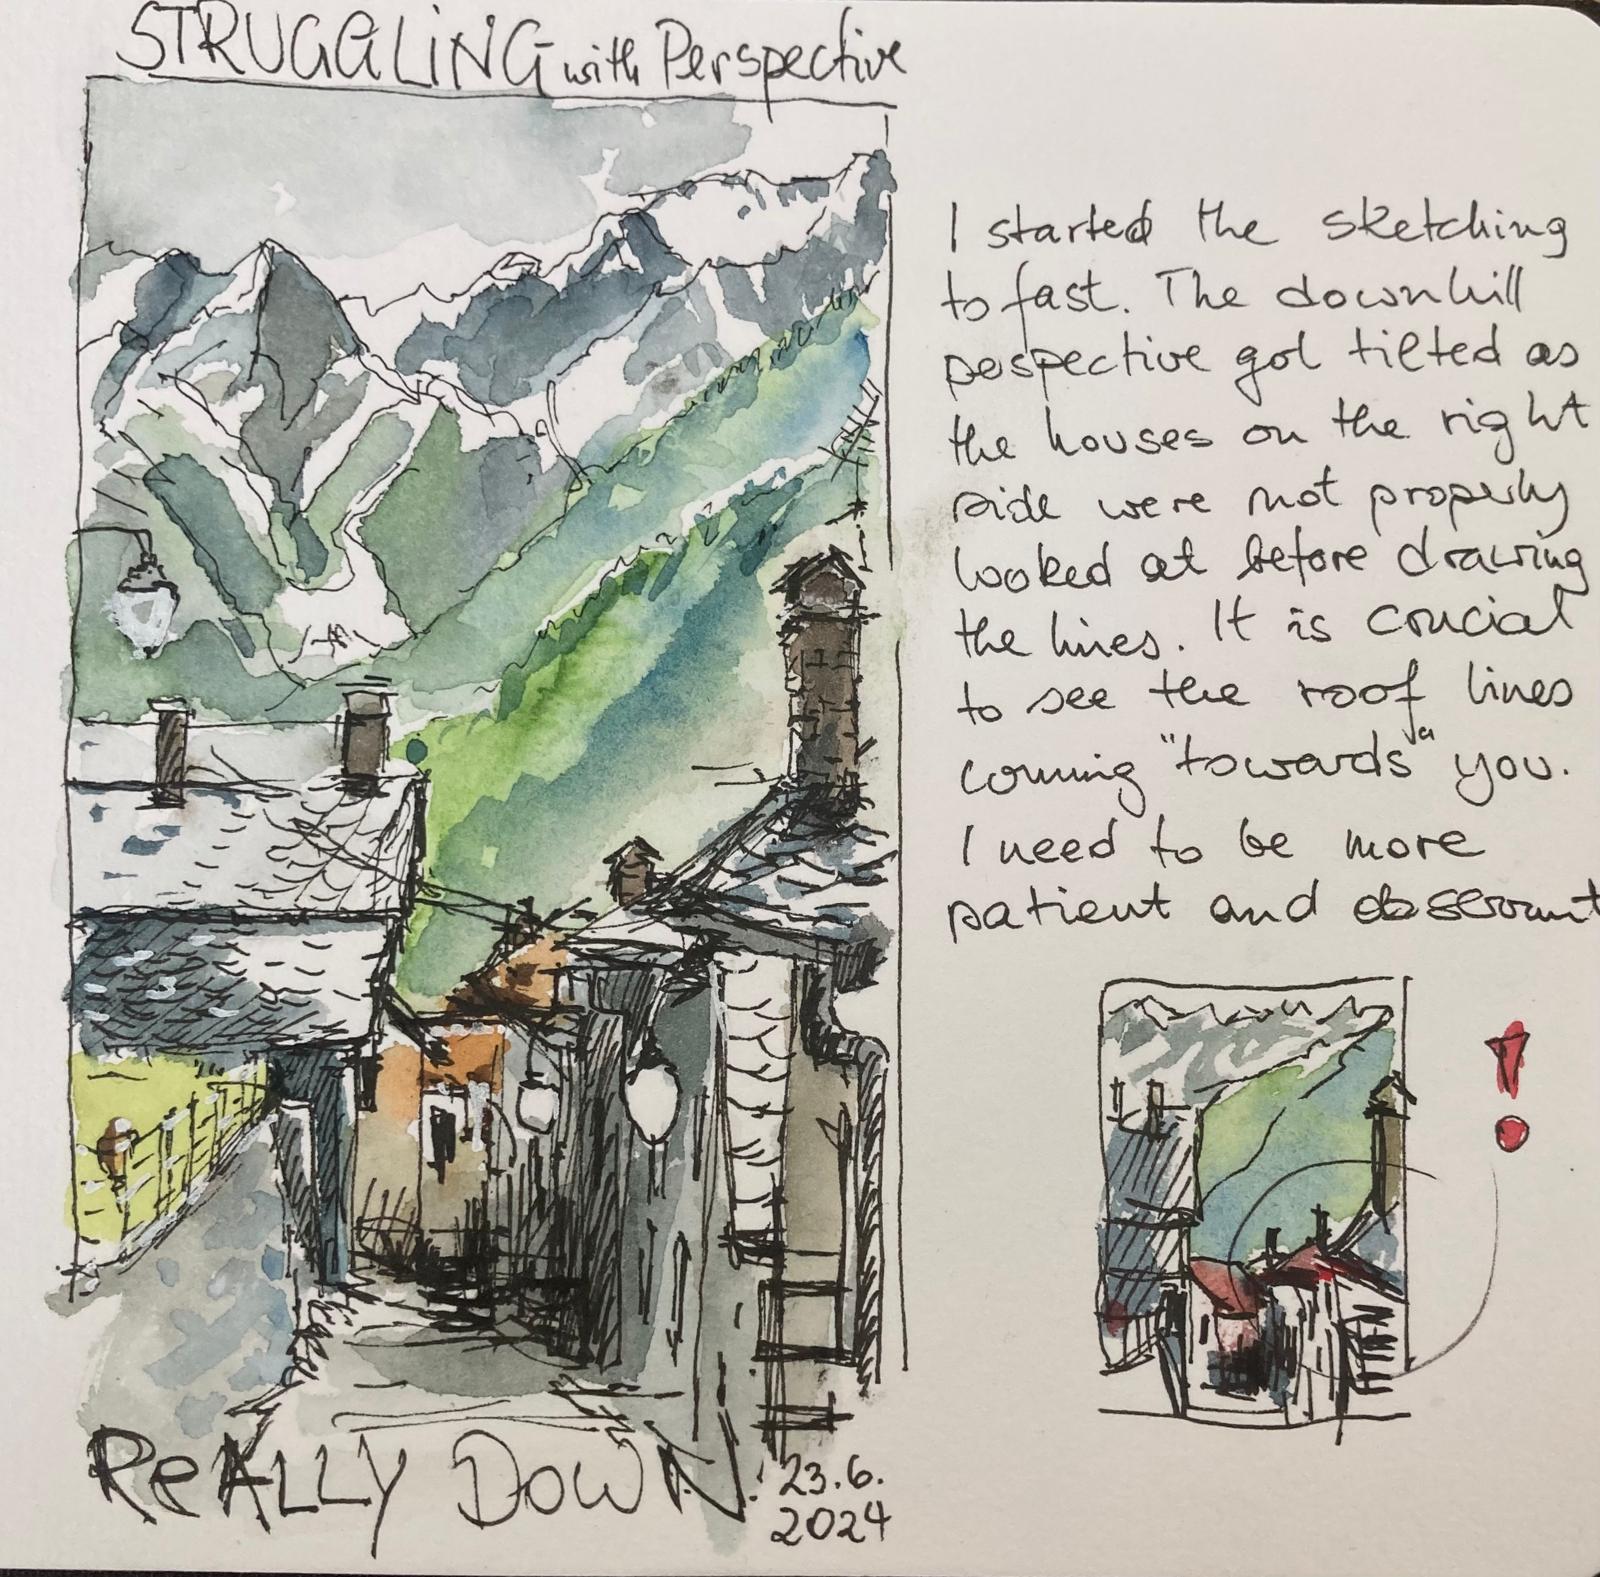 STRUGGLING with Perspective
I started the sketching
to fast. The downhill
pespective got tilted as
the houses on the right
side were not properly
looked at before drawing
the lines. It is crucial
to see the roof lines
coming "towards" you.
I need to be more
patient and observant
REALLY DOWN! 23.6.
2024
!